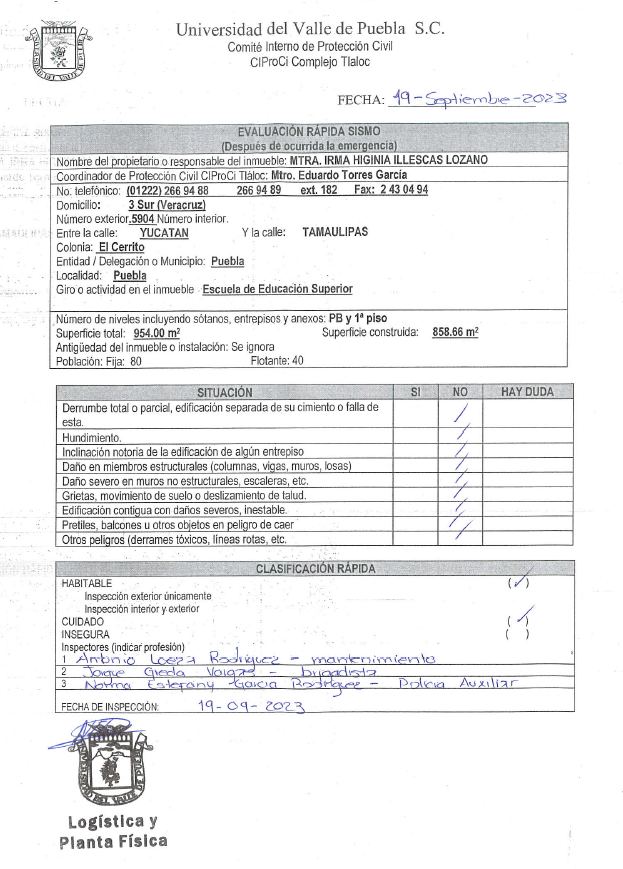 Universidad del Valle de Puebla S.C.
Comité Interno de Protección Civil
CIProCi Complejo Tlaloc
FECHA: 19-Septiembre-2023
EVALUACIÓN RÁPIDA SISMO
(Después de ocurrida la emergencia)
Nombre del propietario o responsable del inmueble: MTRA. IRMA HIGINIA ILLESCAS LOZANO
Coordinador de Protección Civil CIProCi Tlàloc: Mtro. Eduardo Torres García
No. telefónico: (01222) 266 94 88 266 94 89 ext. 182 Fax: 2 43 04 94
Domicilio: 3 Sur (Veracruz)
Número exterior.5904 Número interior.
Entre la calle: YUCATAN Y la calle: TAMAULIPAS
Colonia: El Cerrito
Entidad / Delegación o Municipio: Puebla
Localidad: Puebla
Giro o actividad en el inmueble Escuela de Educación Superior
Número de niveles incluyendo sótanos, entrepisos y anexos: PB y 1ª piso
Superficie total: 954.00 m² Superficie construida: 858.66 m²
Antigüedad del inmueble o instalación: Se ignora
Población: Fija: 80 Flotante: 40
SITUACIÓN SI NO HAY DUDA
Derrumbe total o parcial, edificación separada de su cimiento o falla de
esta.
Hundimiento.
Inclinación notoria de la edificación de algún entrepiso
Daño en miembros estructurales (columnas, vigas, muros, losas)
Daño severo en muros no estructurales, escaleras, etc.
Grietas, movimiento de suelo o deslizamiento de talud.
Edificación contigua con daños severos, inestable.
Pretiles, balcones u otros objetos en peligro de caer
Otros peligros (derrames tóxicos, líneas rotas, etc.
CLASIFICACIÓN RÁPIDA
HABITABLE (✓)
Inspección exterior únicamente
Inspección interior y exterior
CUIDADO (✓)
INSEGURA ( )
Inspectores (indicar profesión)
1 Antonio Loeza Rodriguez - mantenimiento
2 Jorge - brigadista
3 Norma Estefany Garcia Rodriguez - Policia Auxiliar
FECHA DE INSPECCIÓN: 19-09-2023
Logística y
Planta Física